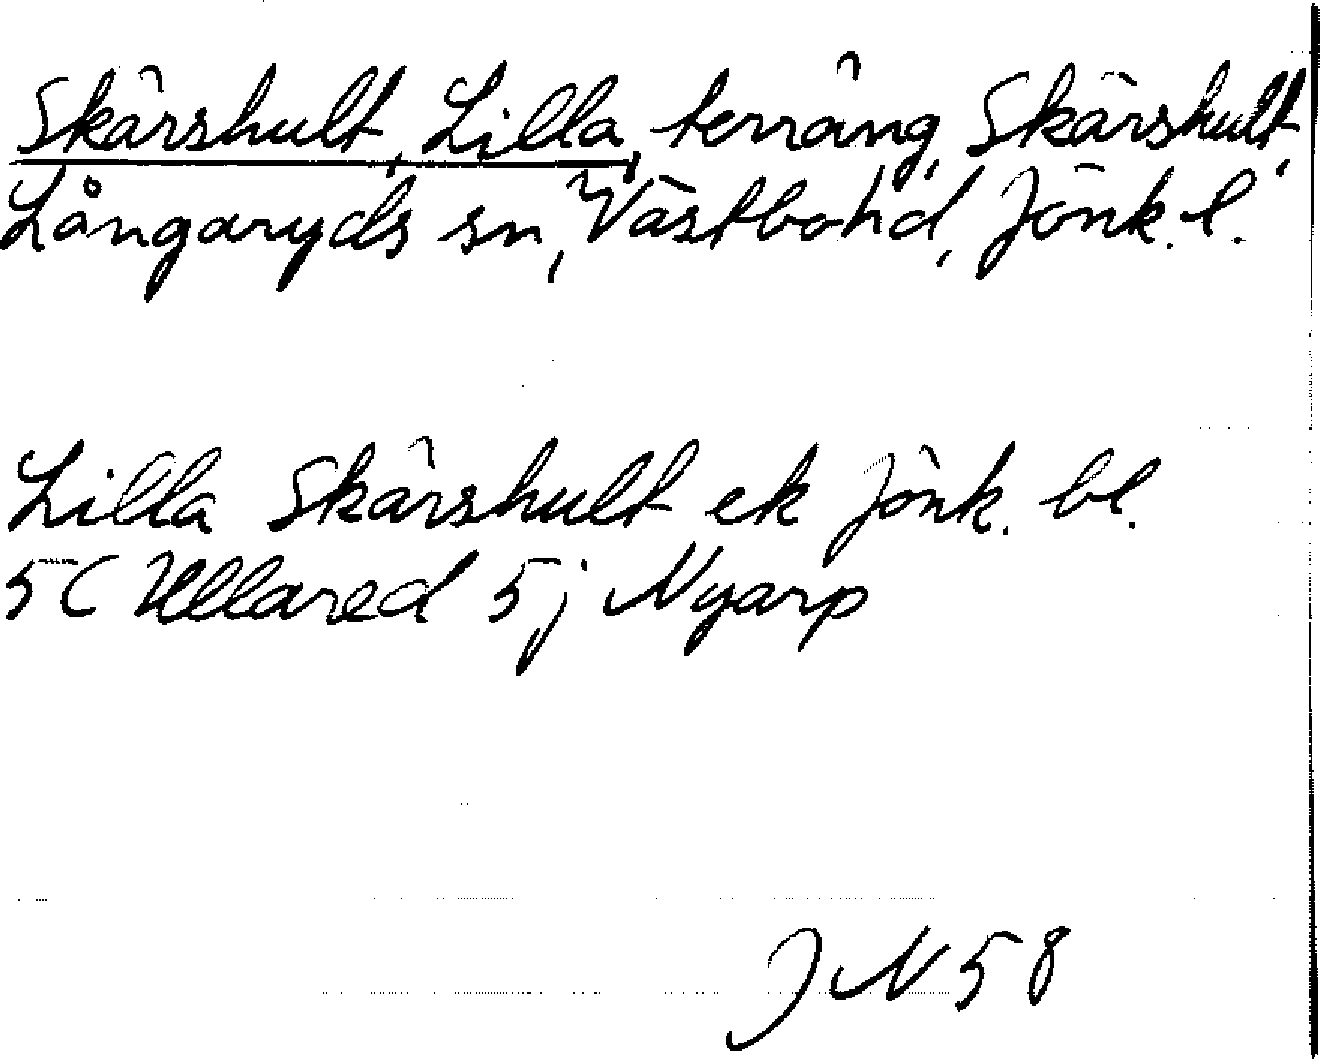 Skärshult, Lilla, terräng, Skärshult,
Långaryds sn, Västbo hd, Jönk. l.
Lilla Skärshult ek Jönk. bl.
5C Ullared 5j Nyarp
JN 58